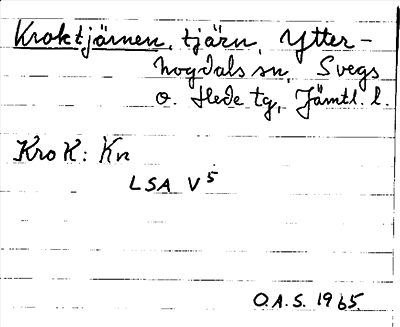 Kroktjärnen, tjärn, Ytter-
hogdals sn, Svegs
o. Hede tg, Jämtl. l.
Krok: Kn
LSA V5
O.A.S. 1965